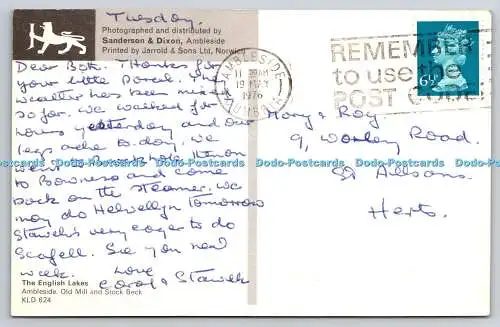 Tuesday.
Photographed and distributed by
Sanderson & Dixon, Ambleside
Printed by Jarrold & Sons Ltd, Norwich
Dear Both. Thanks for
your little parcel. The
weather has been mixed
so far. We walked for
hours yesterday and our
legs ache to-day. We
went to
to Bowness and came
back on the steamer. We
may do Helvellyn Tomorrow
very eager to do
Scafell. See you next
week. Love
Carol &
The English Lakes
Ambleside, Old Mill and Stock Beck
KLD 624
AMBLESIDE
19
1976
CUMBRIA
REMEMBER
to use the
POST CODE
6½P
Mary & Roy
9, Road.
St Albans.
Herts.
Dodo-Postcards Dodo-Postcards Dodo-Postcards Dodo-Postcards Dodo-Postcards